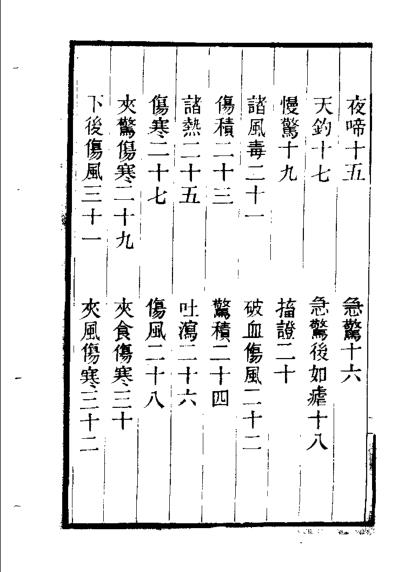 夜啼十五 急驚十六
天釣十七 急驚後如瘧十八
慢驚十九 搐證二十
諸風毒二十一 破血傷風二十二
傷積二十三 驚積二十四
諸熱二十五 吐瀉二十六
傷寒二十七 傷風二十八
夾驚傷寒二十九 夾食傷寒三十
下後傷風三十一 夾風傷寒三十二